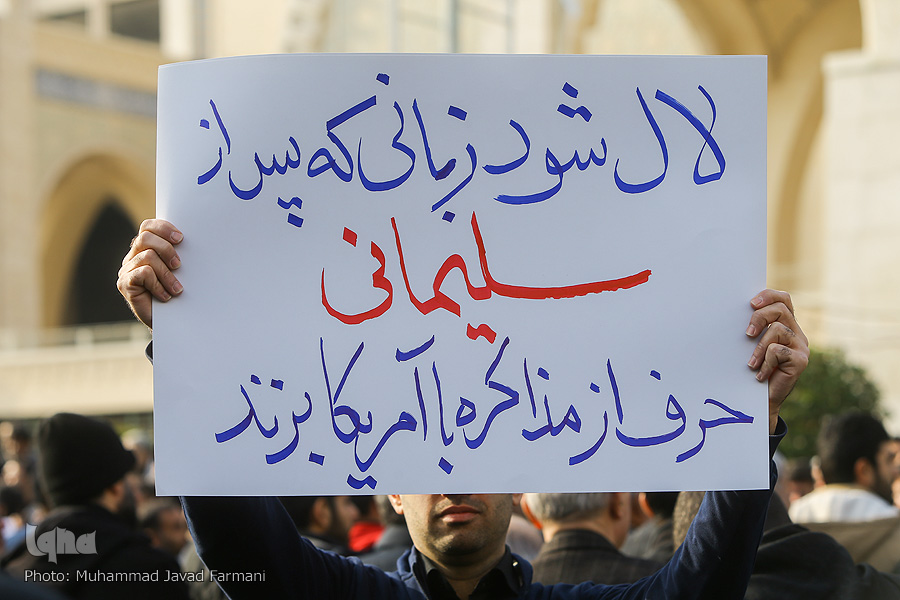 لال شود زمانی که پس از
سلیمانی
حرف از مذاکره با آمریکا بزند
iqna
Photo: Muhammad Javad Farmani